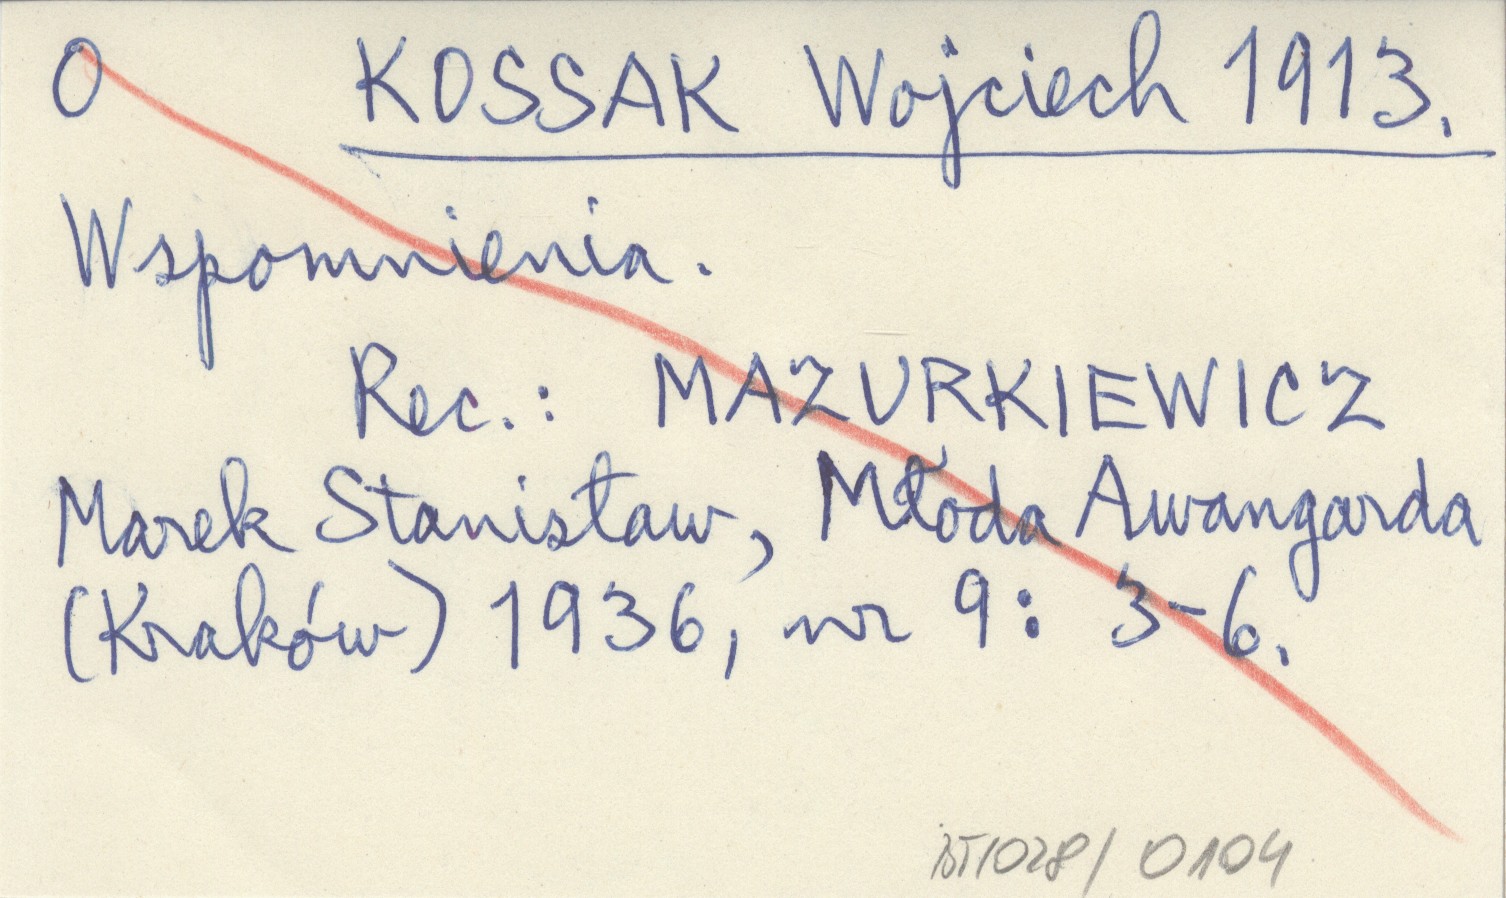 O KOSSAK Wojciech 1913.
Wspomnienia.
Rec.: MAZURKIEWICZ
Marek Stanisław, Młoda Awangarda
(Kraków) 1936, nr 9: 3-6.
0104